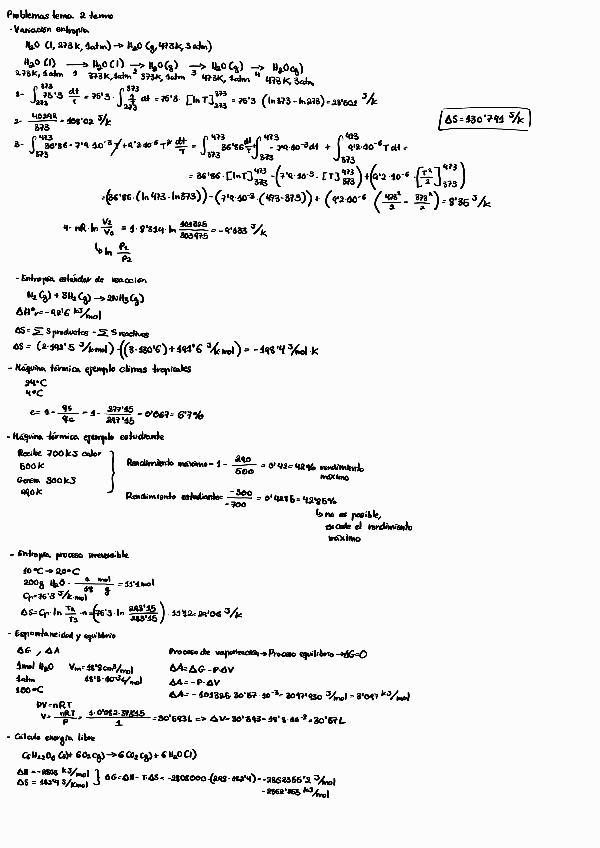 Problemas tema 2 termo
- Variación entropía
H₂O (l, 273K, 1atm) → H₂O (g, 473K, 3atm)
H₂O (l) → H₂O (l) → H₂O (g) → H₂O (g) → H₂O (g)
273K, 1atm 1 373K, 1atm 2 373K, 1atm 3 473K, 1atm 4 473K, 3atm
1- ∫₂₇₃³⁷³ 75'3 dt/t = 75'3 · ∫₂₇₃³⁷³ 1/t dt = 75'3 · [ln T]₂₇₃³⁷³ = 75'3 (ln373 - ln273) = 23'502 J/K
ΔS = 130'791 J/K
2- 40292/373 = 108'02 J/K
3- ∫₃₇₃⁴⁷³ 36'86 - 7'9·10⁻³T + 9'2·10⁻⁶T² dt/t = ∫₃₇₃⁴⁷³ 36'86 dt/t + ∫₃₇₃⁴⁷³ -7'9·10⁻³ dt + ∫₃₇₃⁴⁷³ 9'2·10⁻⁶ T dt =
= 36'86 · [lnT]₃₇₃⁴⁷³ - (7'9·10⁻³ · [T]₃₇₃⁴⁷³) + (9'2·10⁻⁶ [T²/2]₃₇₃⁴⁷³)
= (36'86 · (ln 473 - ln373)) - (7'9·10⁻³ · (473-373)) + (9'2·10⁻⁶ (473²/2 - 373²/2)) = 8'35 J/K
4- nR · ln V₂/V₁ = 1 · 8'314 · ln 101325/303975 = -9'133 J/K
↳ ln P₁/P₂
- Entropía estándar de reacción
N₂ (g) + 3H₂ (g) → 2NH₃ (g)
ΔH°r = -92'6 kJ/mol
ΔS = Σ S productos - Σ S reactivos
ΔS = (2·192'5 J/K·mol) - ((3·130'6) + 191'6 J/K·mol) = -198'4 J/mol·K
- Máquina térmica ejemplo climas tropicales
24°C
4°C
e = 1 - qf/qc = 1 - 277'15/297'15 = 0'067 = 6'7%
- Máquina térmica ejemplo estudiante
Recibe 700kJ calor
500K
Genera 300kJ
290K
Rendimiento máximo = 1 - 290/500 = 0'42 = 42% rendimiento máximo
Rendimiento estudiante = -300/-700 = 0'4285 = 42'85%
↳ no es posible,
excede el rendimiento
máximo
- Entropía proceso irreversible
10°C → 20°C
200g H₂O · 1 mol/18 g = 11'1mol
Cp = 75'3 J/K·mol
ΔS = Cp · ln T₂/T₁ · n = (75'3 · ln 293'15/283'15) · 11'12 = 29'06 J/K
- Espontaneidad y equilibrio
ΔG, ΔA
Proceso de vaporización → Proceso equilibrio → ΔG=0
1mol H₂O Vm = 18'8cm³/mol
1atm 18'8·10⁻³ L/mol
100°C
ΔA = ΔG - P·ΔV
ΔA = -P·ΔV
ΔA = -101325 · 30'57·10⁻³ = -3097'930 J/mol = -3'097 kJ/mol
PV = nRT
V = nRT/P = 1·0'082·373'15/1 = 30'593L => ΔV = 30'593 - 18'8·10⁻³ = 30'57L
- Cálculo energía libre
C₆H₁₂O₆ (s) + 6O₂ (g) → 6CO₂ (g) + 6H₂O (l)
ΔH = -2808 kJ/mol
ΔS = 182'4 J/Kmol
ΔG = ΔH - T·ΔS = -2808000 - (298·182'4) = -2862355'2 J/mol
-2862'355 kJ/mol